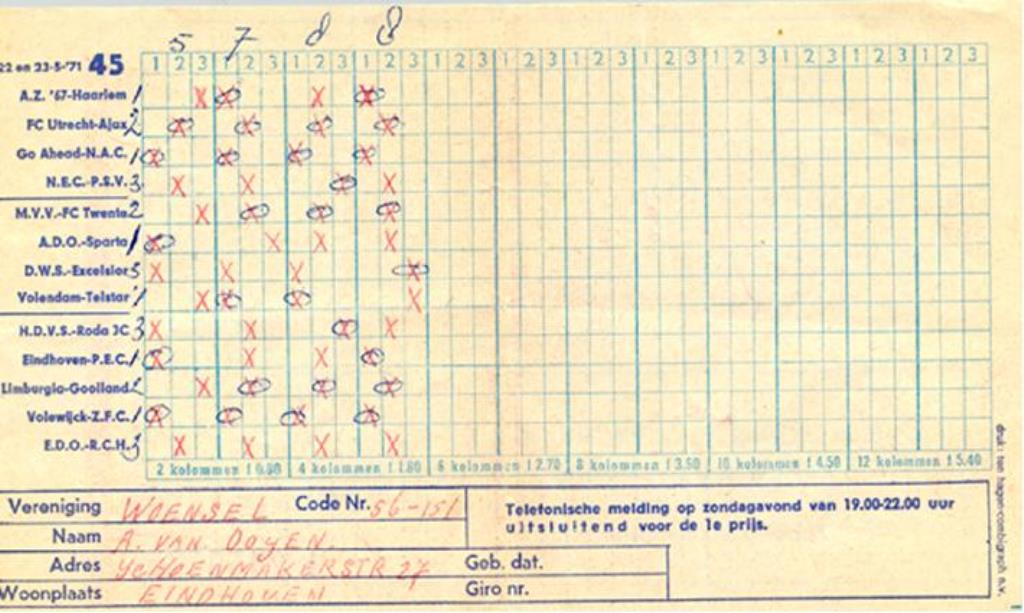 5 7 8 8
22 en 23-5-'71 45 1 2 3 1 2 3 1 2 3 1 2 3 1 2 3 1 2 3 1 2 3 1 2 3 1 2 3 1 2 3 1 2 3 1 2 3
A.Z. '67-Haarlem 1 X X X X
FC Utrecht-Ajax 2 X X X X
Go Ahead-N.A.C. 1 X X X X
N.E.C.-P.S.V. 3 X X X X
M.V.V.-FC Twente 2 X X X X
A.D.O.-Sparta 1 X X X X
D.W.S.-Excelsior 3 X X X X
Volendam-Telstar 1 X X X X
H.D.V.S.-Roda JC 3 X X X X
Eindhoven-P.E.C. 1 X X X X
Limburgia-Gooiland 2 X X X X
Volewijck-Z.F.C. 1 X X X X
E.D.O.-R.C.H. 3 X X X X
2 kolommen f 0.90 4 kolommen f 1.80 6 kolommen f 2.70 8 kolommen f 3.50 10 kolommen f 4.50 12 kolommen f 5.40
Vereniging WOENSEL Code Nr. 56-151
Telefonische melding op zondagavond van 19.00-22.00 uur
uitsluitend voor de 1e prijs.
Naam A. VAN OOYEN.
Adres SCHOENMAKERSTR 27 Geb. dat.
Woonplaats EINDHOVEN Giro nr.
druk: ten hagen-combigraph n.v.